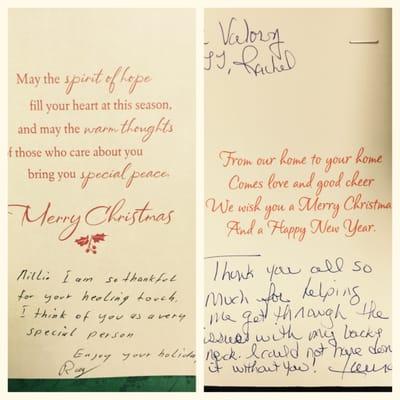 May the spirit of hope
fill your heart at this season,
and may the warm thoughts
of those who care about you
bring you special peace.
Merry Christmas
Millie I am so thankful
for your healing touch.
I think of you as a very
special person
Enjoy your holiday
Ray
Valory
TJ, Rachel
From our home to your home
Comes love and good cheer
We wish you a Merry Christmas
And a Happy New Year.
Thank you all so
much for helping
me get through the
issues with my back &
neck. I could not have done
it without you!